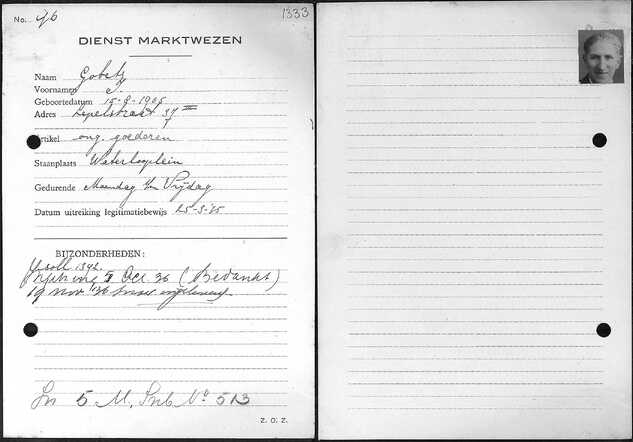 No. 96 1333
DIENST MARKTWEZEN
Naam Gobetz
Voornamen I.
Geboortedatum 15-9-1905
Adres Lepelstraat 37 III
Artikel ong. goederen
Staanplaats Waterlooplein
Gedurende Maandag t/m Vrijdag
Datum uitreiking legitimatiebewijs 25-3-'35
BIJZONDERHEDEN:
soll 1342.
5 Oct. 36 (Bedankt)
19 Nov. '36
In 5 M, Snb No 513
Z. O. Z.